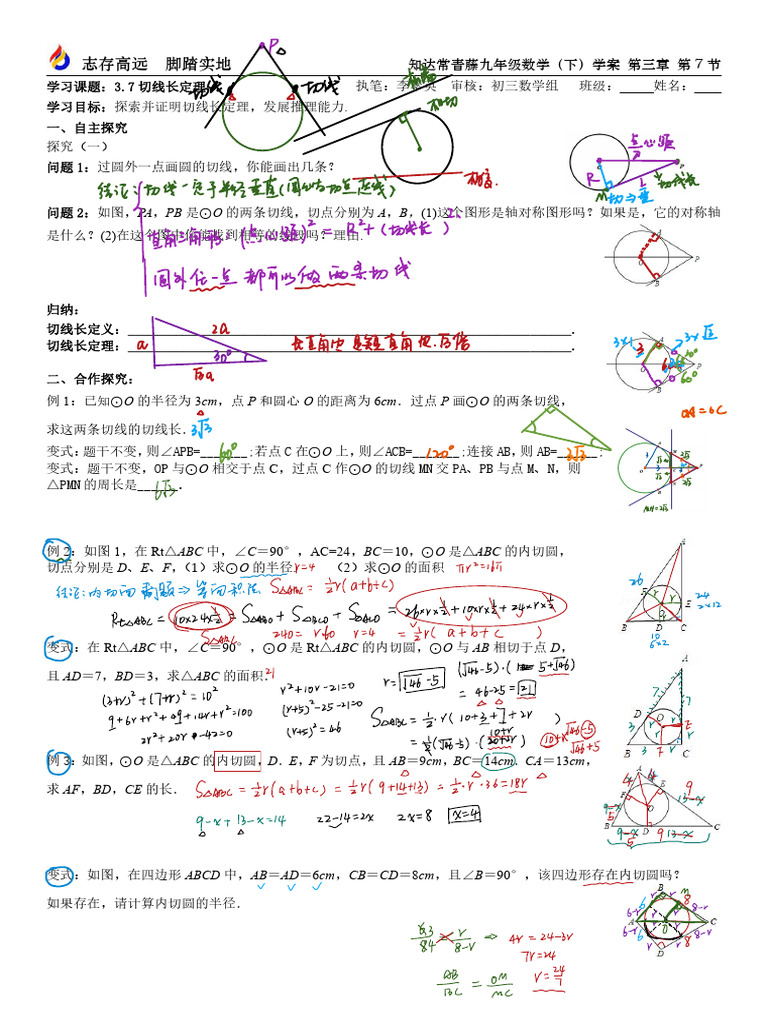 志存高远 脚踏实地
知达常青藤九年级数学（下）学案 第三章 第7节
学习课题：3.7切线长定理
执笔：李 英 审核：初三数学组 班级：____姓名：____
学习目标：探索并证明切线长定理，发展推理能力.
P
切线
切线
相切
一、自主探究
探究（一）
问题1：过圆外一点画圆的切线，你能画出几条？
点心距
R
P
M
切线长
切点
结论：切线一定于半径垂直(圆心与切点连线)
问题2：如图，PA，PB是⊙O的两条切线，切点分别为A，B，(1)这个图形是轴对称图形吗？如果是，它的对称轴
是什么？(2)在这个图中你能找到相等的线段吗？理由.
直角三角形 (点心距)² = R² + (切线长)²
圆外任一点都可以做两条切线
A
O
P
B
归纳：
切线长定义：
切线长定理：
2a
a
30°
√3a
二、合作探究：
例1：已知⊙O的半径为3cm，点P和圆心O的距离为6cm．过点P画⊙O的两条切线，
求这两条切线的切线长.3√3
变式：题干不变,则∠APB=60°;若点C在⊙O上,则∠ACB=120°;连接AB,则AB=3√3;
变式：题干不变，OP与⊙O相交于点C，过点C作⊙O的切线MN交PA、PB与点M、N，则
△PMN的周长是6√3.
例2：如图1，在Rt△ABC中，∠C＝90°，AC=24，BC＝10，⊙O是△ABC的内切圆，
切点分别是D、E、F，（1）求⊙O的半径r=4 （2）求⊙O的面积 πr²=16π
结论：内切圆问题⇒等面积法 S△ABC = ½r(a+b+c)
Rt△ABC = 10×24×½ = S△ABO + S△BCO + S△ACO = 26×r×½+10×r×½+24×r×½
S△ABC 240=r·60 r=4 = ½r(a+b+c)
26
24
2×12
10
变式：在Rt△ABC中，∠C＝90°，⊙O是Rt△ABC的内切圆，⊙O与AB相切于点D，
且AD＝7，BD＝3，求△ABC的面积.21
(3+r)²+(7+r)²=10²
9+6r+r²+49+14r+r²=100
2r²+20r-42=0
r²+10r-21=0
(r+5)²-25-21=0
(r+5)²=46
r=√46-5
= 46-25=21
例3：如图，⊙O是△ABC的内切圆，D．E，F为切点，且AB＝9cm，BC＝14cm．CA＝13cm，
求AF，BD，CE的长．S△ABC=½r(a+b+c)=½r(9+14+13)=½r·36=18r
9-x+13-x=14 22-14=2x 2x=8 x=4
变式：如图，在四边形ABCD中，AB＝AD＝6cm，CB＝CD＝8cm，且∠B＝90°，该四边形存在内切圆吗？
如果存在，请计算内切圆的半径.
⇒ 4r=24-3r
7r=24
AB/BC = OM/MC
r=24/7